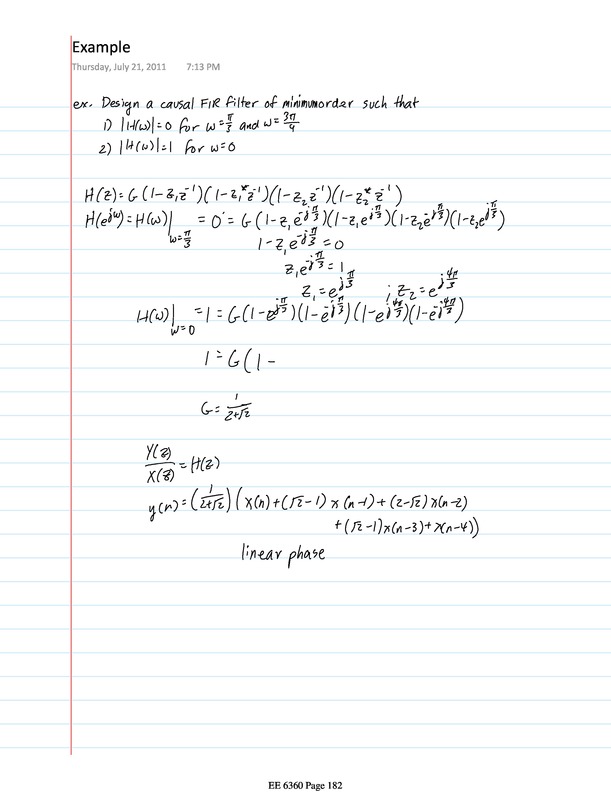 Example
Thursday, July 21, 2011 7:13 PM
ex. Design a causal FIR filter of minimum order such that
1) |H(ω)|=0 for ω=π/3 and ω=3π/4
2) |H(ω)|=1 for ω=0
H(z)=G(1-z₁z⁻¹)(1-z₁*z⁻¹)(1-z₂z⁻¹)(1-z₂*z⁻¹)
H(e^{jω})=H(ω)|_{ω=π/3} =0=G(1-z₁e^{-jπ/3})(1-z₁e^{jπ/3})(1-z₂e^{-jπ/3})(1-z₂e^{jπ/3})
1-z₁e^{-jπ/3}=0
z₁e^{-jπ/3}=1
z₁=e^{jπ/3} ; z₂=e^{j4π/3}
H(ω)|_{ω=0} =1=G(1-e^{jπ/3})(1-e^{-jπ/3})(1-e^{j4π/3})(1-e^{-j4π/3})
1=G(1-
G=1/(2+√2)
Y(z)/X(z)=H(z)
y(n)=(1/(2+√2))(x(n)+(√2-1)x(n-1)+(2-√2)x(n-2)
+(√2-1)x(n-3)+x(n-4))
linear phase
EE 6360 Page 182